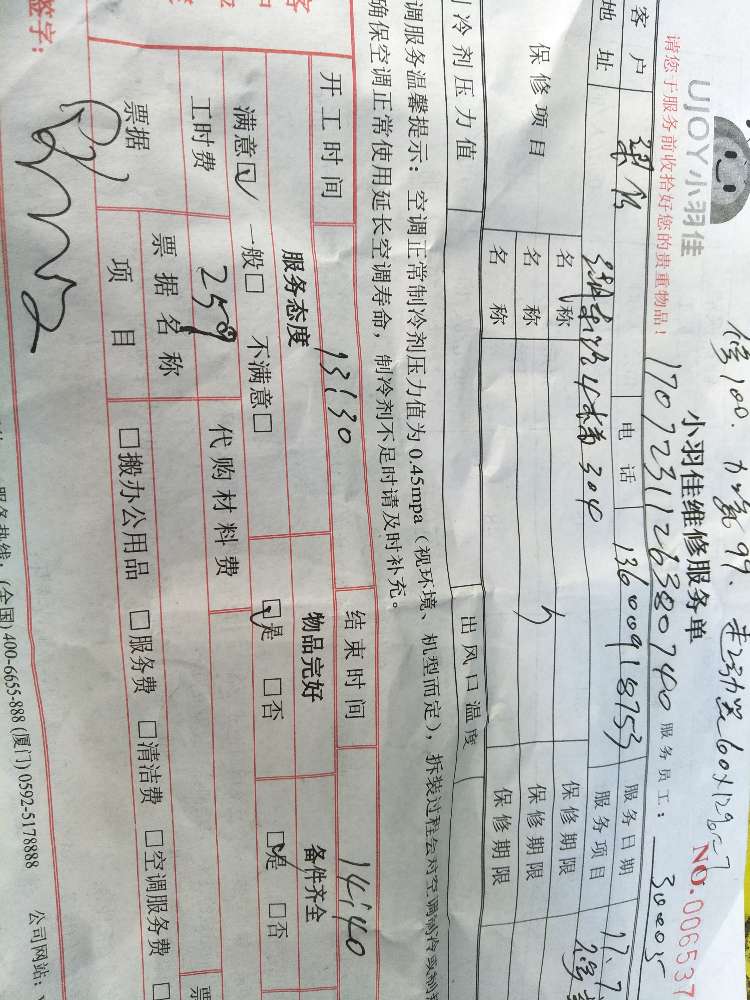 修100.
UJOY小羽佳
小羽佳维修服务单
NO.006537
请您于服务前收拾好您的贵重物品!
17072311263800740
服务员工:
30005
客户
电话
13600918753
服务日期
17.7
地址
4
304
服务项目
保修项目
名称
保修期限
名称
保修期限
名称
保修期限
制冷剂压力值
出风口温度
调服务温馨提示:空调正常制冷剂压力值为0.45mpa(视环境、机型而定),拆装过程会对空调制冷或制热
确保空调正常使用延长空调寿命,制冷剂不足时请及时补充。
开工时间
13:30
结束时间
14:40
服务态度
物品完好
备件齐全
满意☑ 一般□ 不满意□
☑是 □否
☑是 □否
工时费
259
代购材料费
票据
票据名称
项目
□搬办公用品 □服务费 □清洁费 □空调服务费 □
签字:
服务热线:(全国)400-6655-888 (厦门)0592-5178888
公司网站: